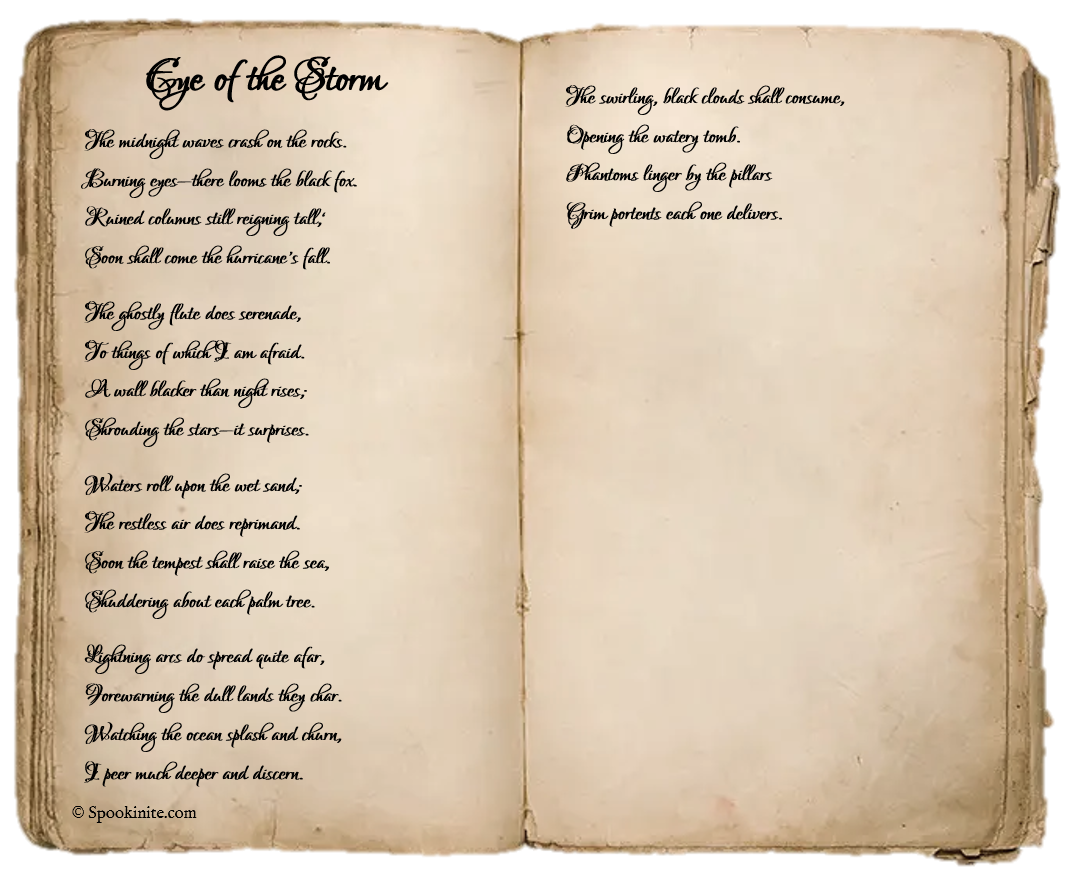 Eye of the Storm
The midnight waves crash on the rocks.
Burning eyes—there looms the black fox.
Ruined columns still reigning tall;‘
Soon shall come the hurricane's fall.
The ghostly flute does serenade,
To things of which I am afraid.
A wall blacker than night rises;
Shrouding the stars—it surprises.
Waters roll upon the wet sand;
The restless air does reprimand.
Soon the tempest shall raise the sea,
Shuddering about each palm tree.
Lightning arcs do spread quite afar,
Forewarning the dull lands they char.
Watching the ocean splash and churn,
I peer much deeper and discern.
© Spookinite.com
The swirling, black clouds shall consume,
Opening the watery tomb.
Phantoms linger by the pillars
Grim portents each one delivers.